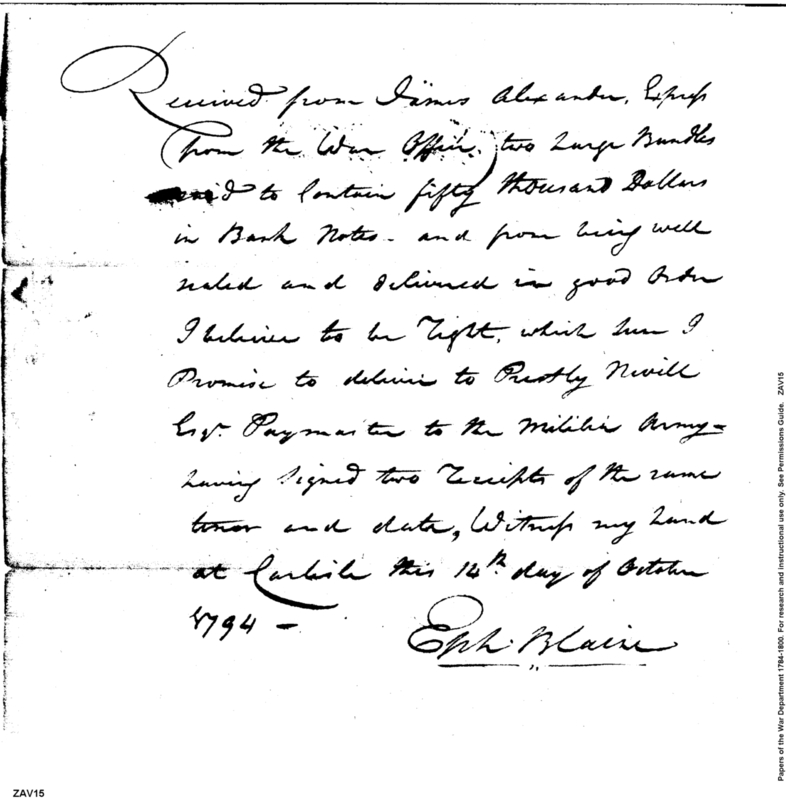 Received from James Alexander, Express
from the War Office, two Large Bundles
said to Contain fifty thousand Dollars
in Bank Notes - and from being well
sealed and delivered in good Order
I believe to be Right, which sum I
Promise to deliver to Prestly Nevill
Esqr. Paymaster to the Militia Army -
having Signed two Receipts of the same
tenor and date, Witness my hand
at Carlisle this 14th day of October
1794 -
Eph. Blaine
ZAV15
Papers of the War Department 1784-1800. For research and instructional use only. See Permissions Guide. ZAV15